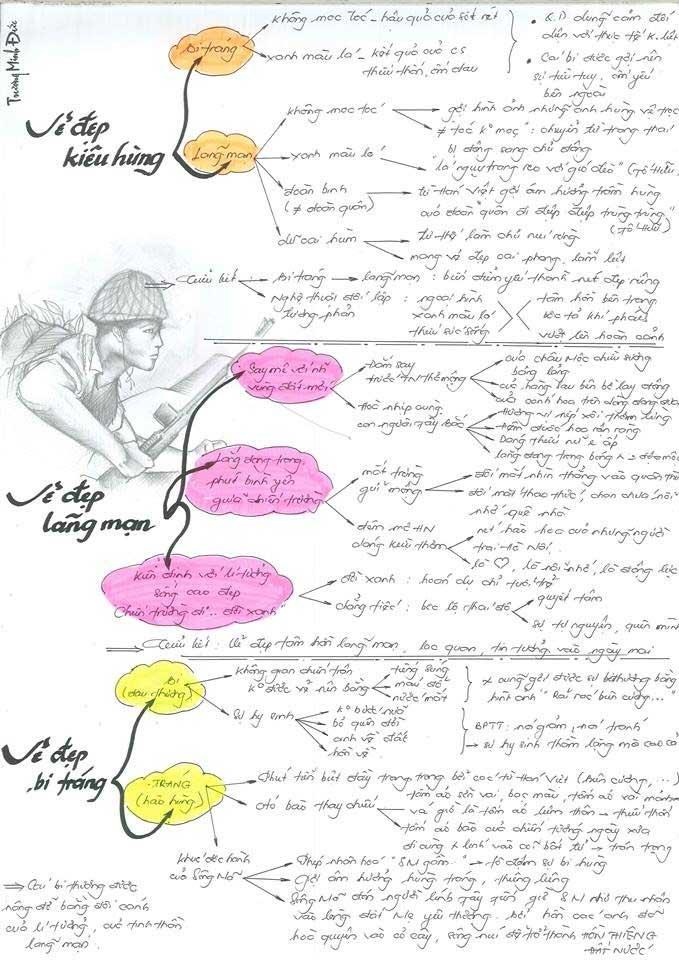 Trương Minh Đức
Vẻ đẹp
kiêu hùng
Bi tráng
không mọc tóc - hậu quả của sốt rét
xanh màu lá - kết quả của cs
thiếu thốn, ốm đau
dũng cảm đối
diện với thực tế k.liệt
Cái bi được gợi nên
sự tiều tụy, ốm yếu
bên ngoài
Lãng mạn
không mọc tóc
gợi hình ảnh những anh hùng vệ trọc
≠ tóc k° mọc: chuyển từ trạng thái
bị động sang chủ động
xanh màu lá
"lá ngụy trang reo với gió đèo" (Tố Hữu)
đoàn binh
(≠ đoàn quân)
từ Hán Việt gợi âm hưởng trầm hùng
của đoàn "quân đi điệp điệp trùng trùng"
(Tố Hữu)
dữ oai hùm
tư thế làm chủ núi rừng
mang vẻ đẹp oai phong, lẫm liệt
⇒ Tiểu kết: Bi tráng → lãng mạn:
Nghệ thuật đối lập: ngoại hình
tương phản
xanh màu lá
thiếu sức sống
tâm hồn bên trong
vượt lên hoàn cảnh
Vẻ đẹp
lãng mạn
Say mê với n~
vùng đất mới
Đắm say
trước TN thơ mộng
của châu Mộc chiều sương
bảng lảng
của hàng lau bên bờ lay động
của cánh hoa trên dòng
Học nhịp cùng
con người Tây Bắc
Hương vị nếp xôi thơm lừng
Dáng thiếu nữ e ấp
Lắng đọng trong
phút bình yên
giữa chiến trường
mắt trừng
gửi mộng
đôi mắt nhìn thẳng vào quân thù
đôi mắt thao thức, chan chứa nỗi
nhớ quê nhà
đêm mơ HN
dáng kiều thơm
nét hào hoa của những người
trai Hà Nội
là ♡, là nỗi nhớ, là động lực
Kiên định với lí tưởng
sống cao đẹp
"Chiến trường đi.. đời xanh"
đời xanh: hoán dụ chỉ tuổi trẻ
chẳng tiếc: bộc lộ thái độ
quyết tâm
sự tự nguyện, quên mình
⇒ Tiểu kết: Vẻ đẹp tâm hồn lãng mạn, lạc quan, tin tưởng vào ngày mai
Vẻ đẹp
bi tráng
Bi
(đau thương)
không gian chiến trận
k° được vẽ nên bằng
tiếng súng
máu đổ
nước mắt
gợi được sự bi thương bằng
hình ảnh "Rải rác biên cương..."
Sự hy sinh
k° bước nữa
bỏ quên đời
anh về đất
BPTT: nói giảm, nói tránh
→ sự hy sinh thầm lặng mà cao cả
TRÁNG
(hào hùng)
Phút tiễn biệt đầy trang trọng bởi các từ Hán Việt (biên cương,...)
áo bào thay chiếu
tấm áo sờn vai, bạc màu, tấm áo vá
và giờ là tấm áo liệm thân → thiếu thốn
tấm áo bào của chiến tướng ngày xưa
đi cùng + lính vào cõi bất tử → trân trọng
khúc độc hành
của Sông Mã
Phép nhân hóa "SM gầm.." → tô đậm sự bi hùng
gợi âm hưởng hùng tráng, thiêng liêng
Sông Mã đón người lính Tây Tiến, giờ SM như thu nhận
vào lòng đất Mẹ yêu thương. Bởi hồn các anh đã
hoà quyện vào cỏ cây, sông núi để trở thành HỒN THIÊNG
ĐẤT NƯỚC
⇒ Cái bi thương được
nâng đỡ bằng đôi cánh
của lí tưởng, của tinh thần
lãng mạn.